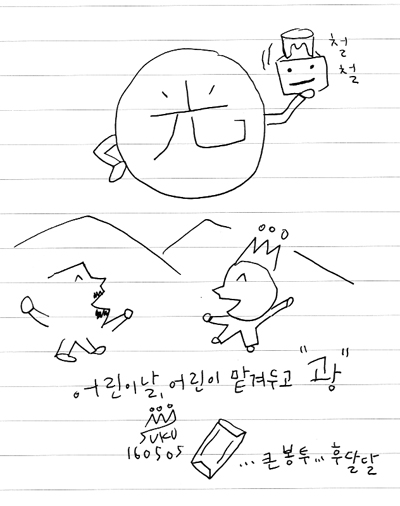 光
철
철
어린이날, 어린이 맡겨두고 "고광"
SUKU
160505
...큰봉투...후달달